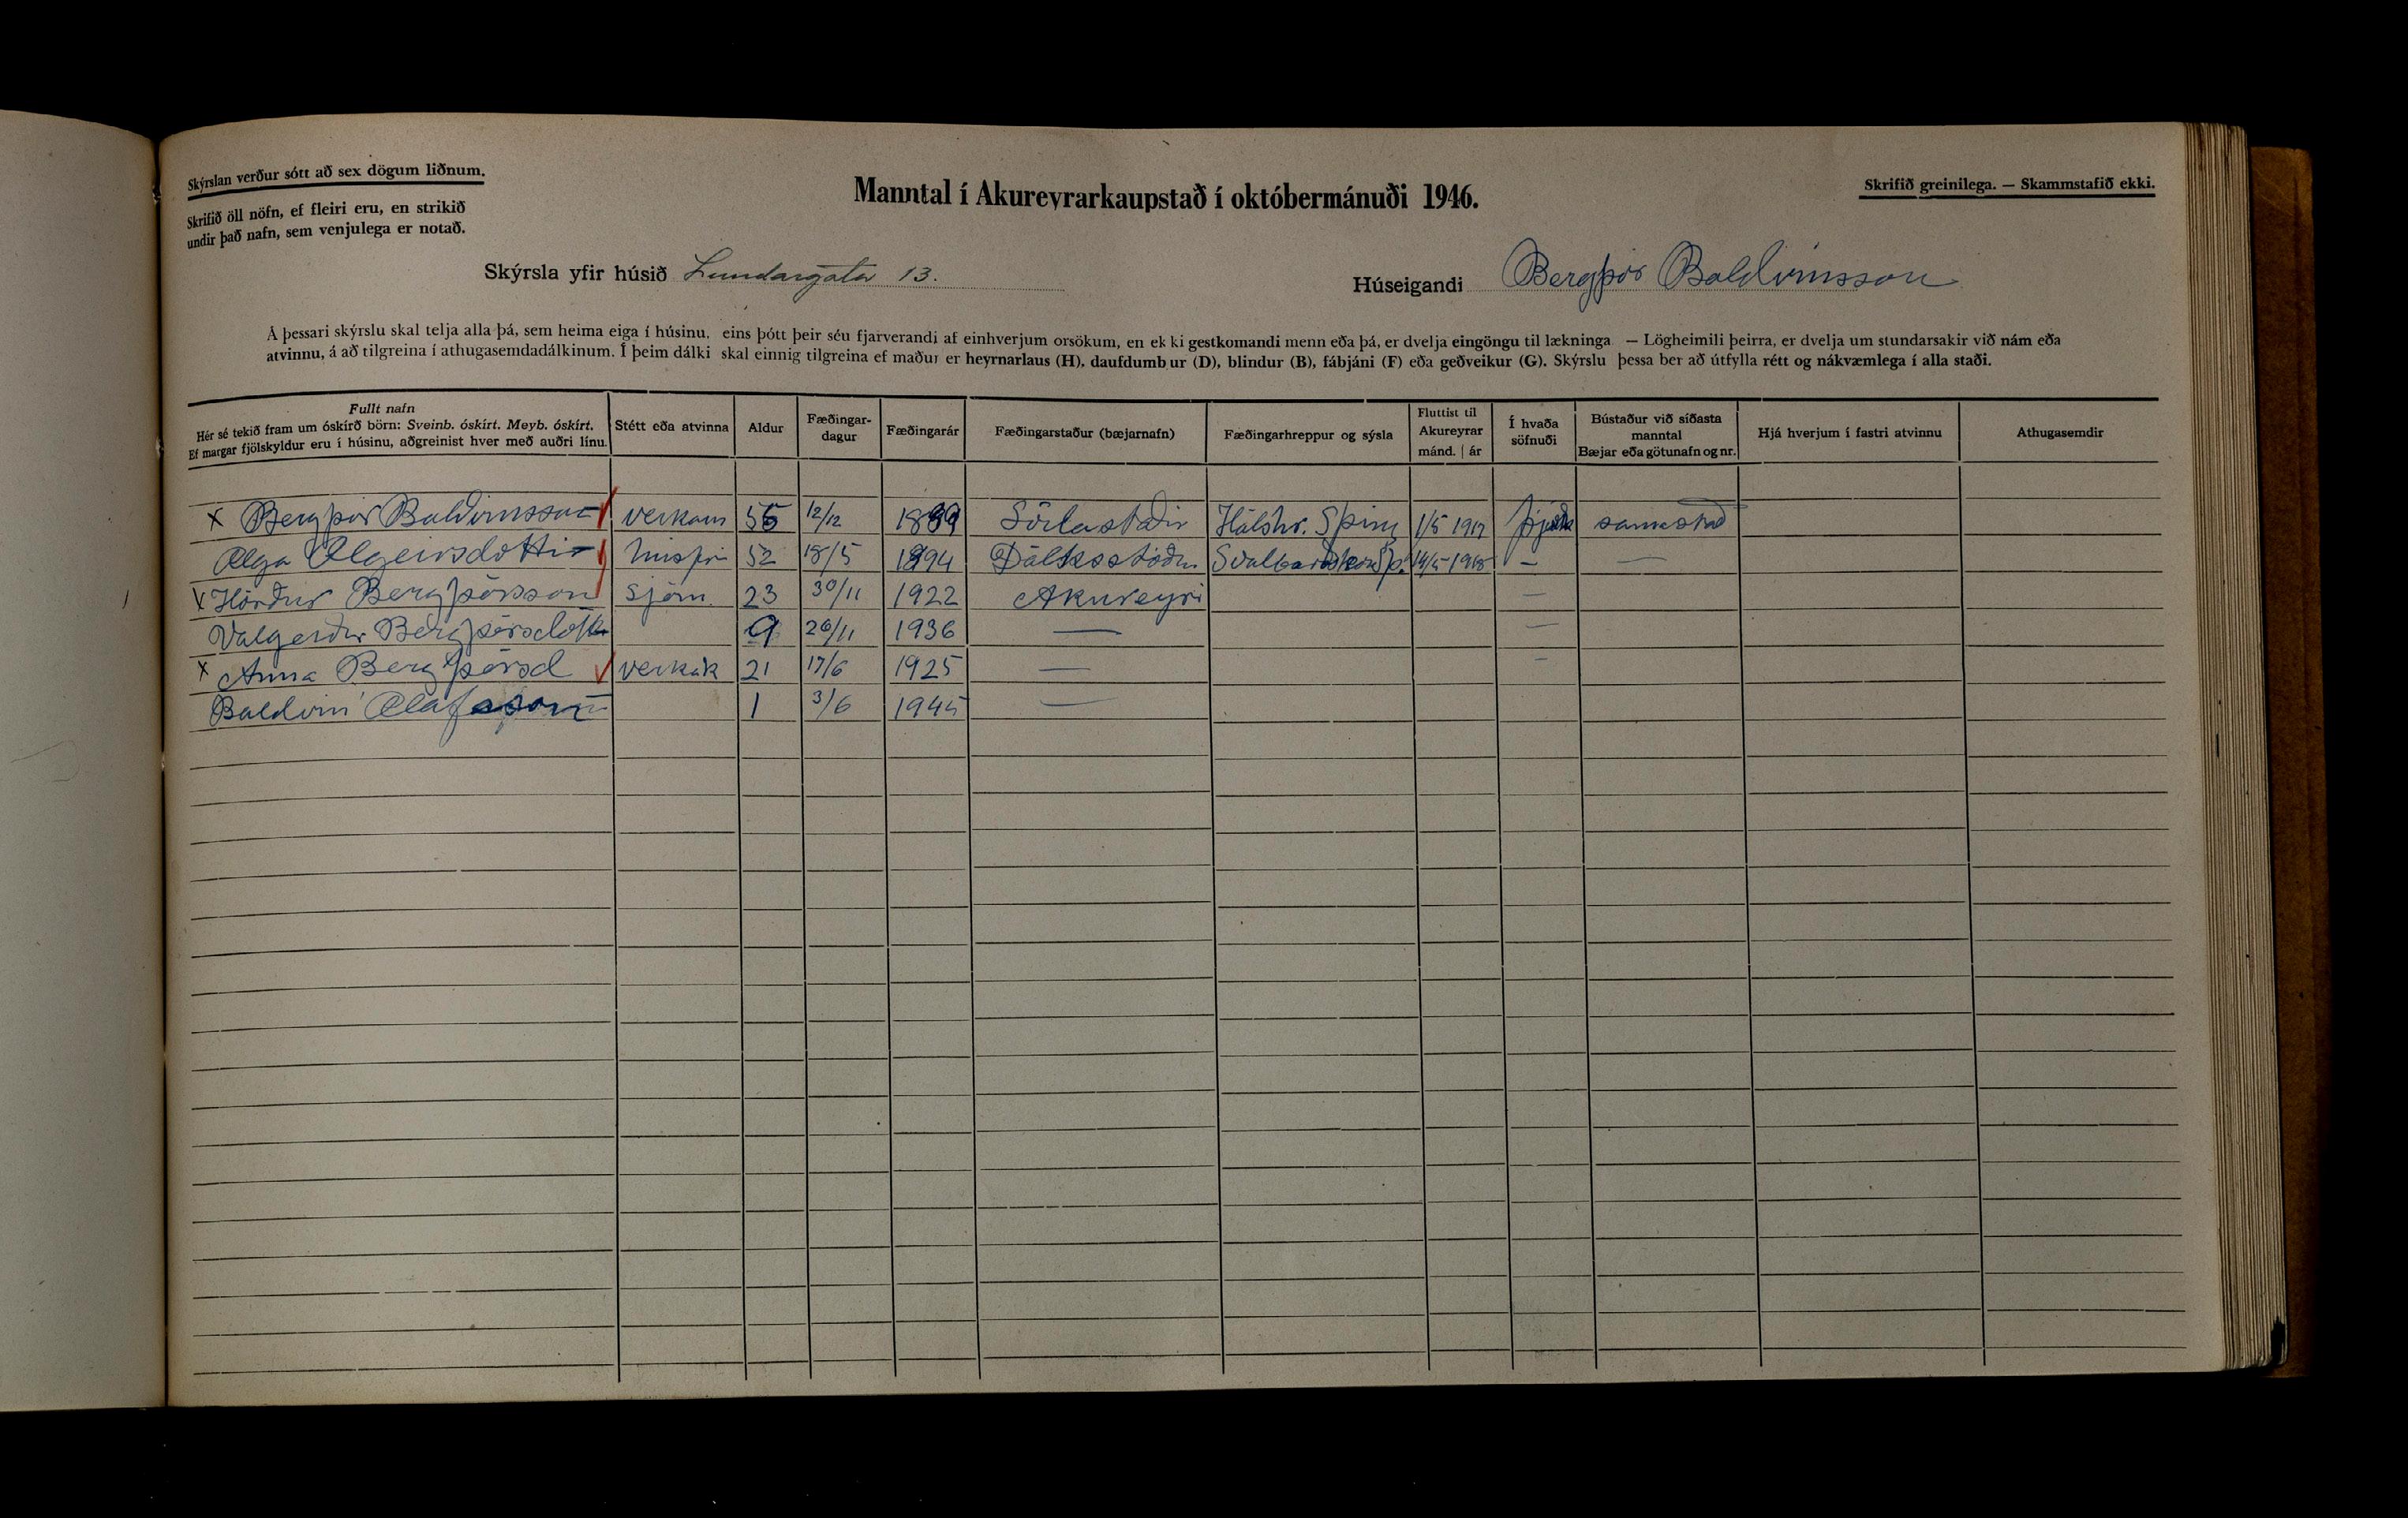 Skýrslan verður sótt að sex dögum liðnum.
Skrifið öll nöfn, ef fleiri eru, en strikið
undir það nafn, sem venjulega er notað.
Manntal í Akureyrarkaupstað í októbermánuði 1946.
Skrifið greinilega. — Skammstafið ekki.
Skýrsla yfir húsið Lundargata 13.
Húseigandi Bergþór Baldvinsson
Á þessari skýrslu skal telja alla þá, sem heima eiga í húsinu, eins þótt þeir séu fjarverandi af einhverjum orsökum, en ekki gestkomandi menn eða þá, er dvelja eingöngu til lækninga — Lögheimili þeirra, er dvelja um stundarsakir við nám eða
atvinnu, á að tilgreina í athugasemdadálkinum. Í þeim dálki skal einnig tilgreina ef maður er heyrnarlaus (H), daufdumbur (D), blindur (B), fábjáni (F) eða geðveikur (G). Skýrslu þessa ber að útfylla rétt og nákvæmlega í alla staði.
Fullt nafn
Hér sé tekið fram um óskírð börn: Sveinb. óskírt. Meyb. óskírt.
Ef margar fjölskyldur eru í húsinu, aðgreinist hver með auðri línu.
Stétt eða atvinna
Aldur
Fæðingar-
dagur
Fæðingarár
Fæðingarstaður (bæjarnafn)
Fæðingarhreppur og sýsla
Fluttist til
Akureyrar
mánd. | ár
Í hvaða
söfnuði
Bústaður við síðasta
manntal
Bæjar eða götunafn og nr.
Hjá hverjum í fastri atvinnu
Athugasemdir
x Bergþór Baldvinsson verkam 56 12/12 1889 Sörlastaðir Hálshr. S þing 1/5 1917 þjóðk samastað
Olga Olgeirsdottir húsfrú 52 18/5 1894 Dálksstöðum 14/5 1918 — —
x Hörður Bergþórsson sjóm. 23 30/11 1922 Akureyri —
Valgerður Bergþórsdóttir 9 26/11 1936 — —
x Anna Bergþórsd verkak 21 17/6 1925 — —
Baldvin Olafsson 1 3/6 1945 —